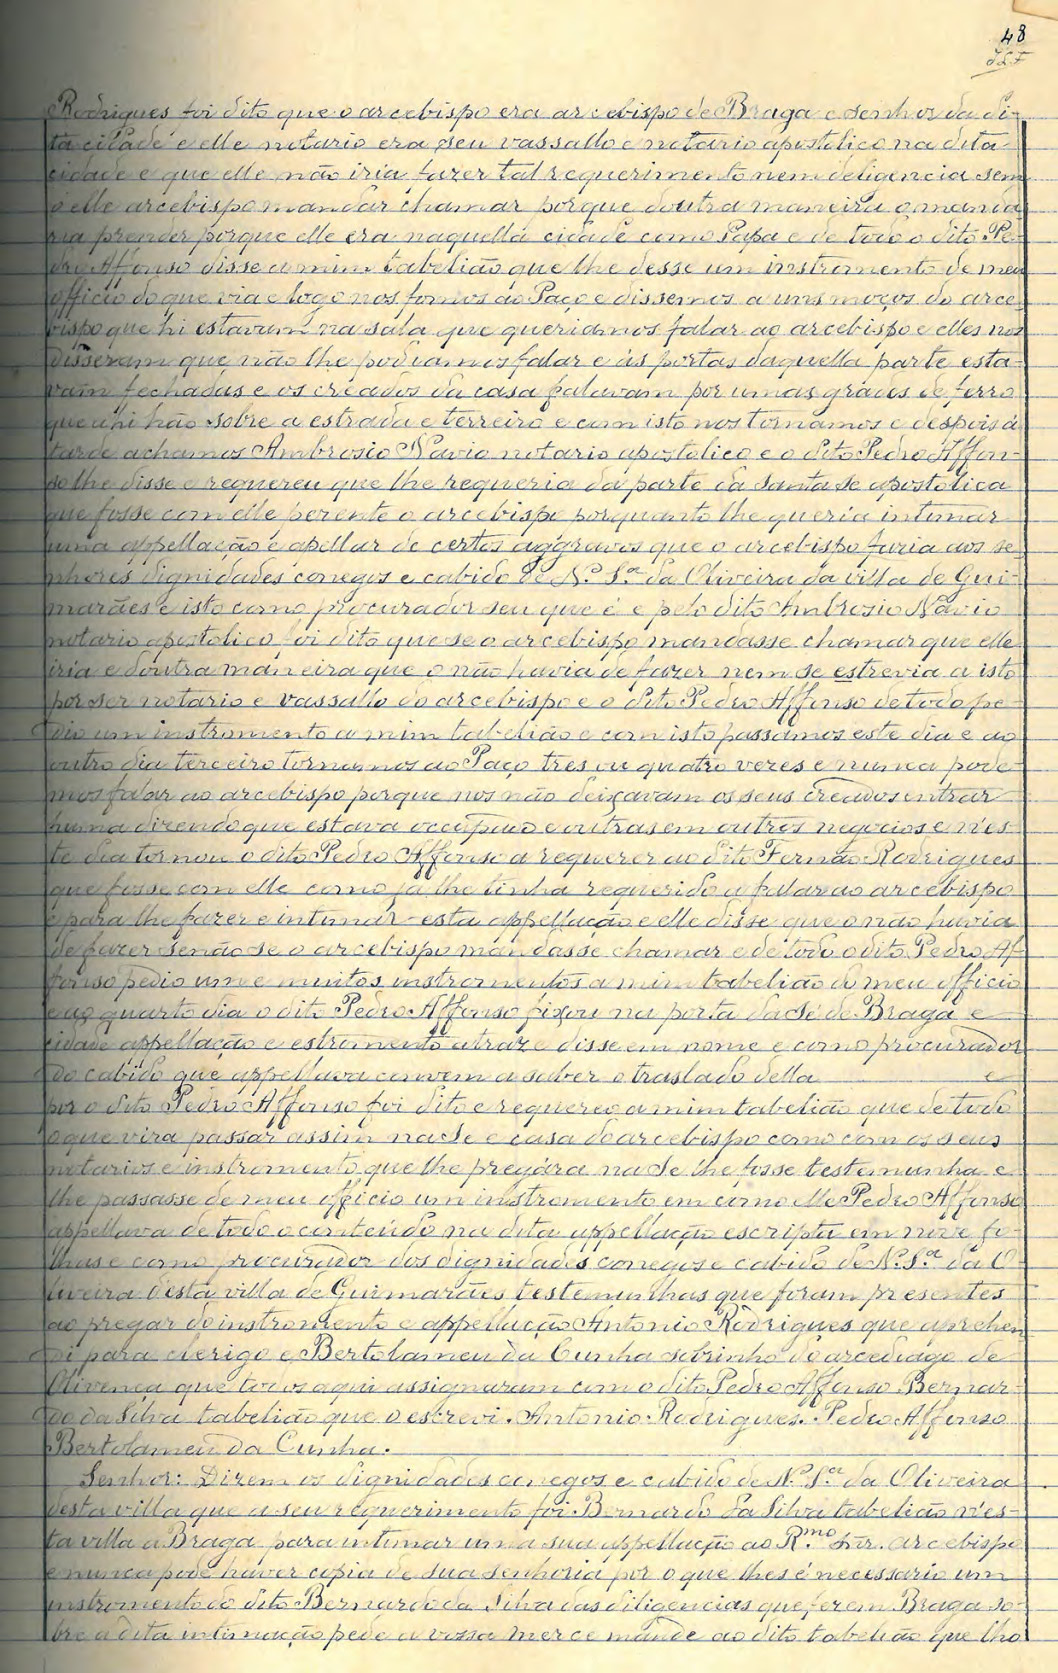 48
Rodrigues foi dito que o arcebispo era arcebispo de Braga e senhor da di-
ta cidade e elle notario era seu vassallo e notario apostolico na dita
cidade e que elle não iria fazer tal requerimento nem deligencia sem
o elle arcebispo mandar chamar porque doutra maneira o manda
ria prender porque elle era naquella cidade como Papa e de todo o dito Pe-
dro Affonso disse a mim tabelião que lhe desse um instromento de meu
officio do que via e logo nos fomos ao Paço e dissemos a uns moços do arce-
bispo que hi estavam na sala que queriamos falar ao arcebispo e elles nos
disseram que não lhe podiamos falar e as portas daquella parte esta-
vam fechadas e os creados da casa falavam por umas grades de ferro
que ahi hão sobre a estrada e terreiro e com isto nos tornamos e despois á
tarde achamos Ambrosio Navio notario apostolico e o dito Pedro Affon-
so lhe disse e requereu que lhe requeria da parte da santa se apostolica
que fosse com elle perente o arcebispo porquanto lhe queria intimar
uma appellação e apellar de certos aggravos que o arcebispo fazia aos se-
nhores dignidades conegos e cabido de N.ª S.ª da Oliveira da villa de Gui-
marães e isto como procurador seu que é e pelo dito Ambrosio Navio
notario apostolico foi dito que se o arcebispo mandasse chamar que elle
iria e doutra maneira que o não havia de fazer nem se estrevia a isto
por ser notario e vassallo do arcebispo e o dito Pedro Affonso de todo pe-
dio um instromento a mim tabelião e com isto passamos este dia e ao
outro dia terceiro tornamos ao Paço tres ou quatro vezes e nunca pode-
mos falar ao arcebispo porque nos não deixavam os seus creados entrar
huma dizendo que estava occupado e outras em outros negocios e n'es-
te dia tornou o dito Pedro Affonso a requerer ao dito Fernão Rodrigues
que fosse com elle como ja lhe tinha requerido a falar ao arcebispo
e para lhe fazer e intimar esta appellação e elle disse que o não havia
de fazer senão se o arcebispo mandasse chamar e de todo o dito Pedro Af-
fonso pedio um e muitos instromentos a mim tabelião do meu officio
e ao quarto dia o dito Pedro Affonso fixou na porta da Sé de Braga e
cidade appellação e estromento atraz e disse em nome e como procurador
do cabido que appellava convem a saber o traslado della e
por o dito Pedro Affonso foi dito e requereo a mim tabelião que de todo
o que vira passar assim na Se e casa do arcebispo como com os seus
notarios e instromento que lhe pregára na Se lhe fosse testemunha e
lhe passasse de meu officio um instromento em como elle Pedro Affonso
appellava de todo o conteúdo na dita appellação escripta em nove fo-
lhas e como procurador dos dignidades conegos e cabido de N.ª S.ª da O-
liveira desta villa de Guimarães testemunhas que foram presentes
ao pregar do instromento e appellação Antonio Rodrigues que aprehen
di para clerigo e Bertolameu da Cunha sobrinho do arcediago de
Olivença que todos aqui assignaram com o dito Pedro Affonso Bernar-
do da Silva tabelião que o escrevi. Antonio Rodrigues. Pedro Affonso
Bertolameu da Cunha.
Senhor: Dizem os dignidades conegos e cabido de N.ª S.ª da Oliveira
desta villa que a seu requerimento foi Bernardo da Silva tabelião n'es-
ta villa a Braga para intimar uma sua appellação ao R.mo Snr. arcebispo
e nunca pode haver copia de sua senhoria por o que lhes é necessario um
instromento do dito Bernardo da Silva das diligencias que fez em Braga so-
bre a dita intimação pede a vossa merce mande ao dito tabelião que lho